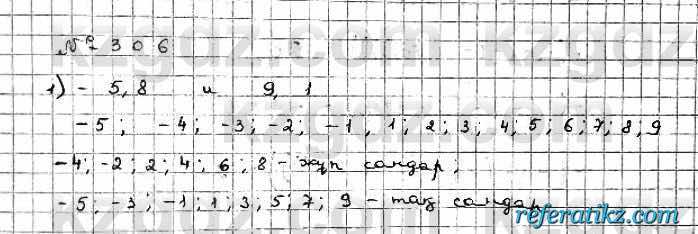 № 306
1) - 5,8 и 9,1
-5; -4; -3; -2; -1, 1; 2; 3; 4; 5; 6; 7; 8, 9
-4; -2; 2; 4; 6; 8 - жұп сандар;
-5; -3; -1; 1; 3; 5; 7; 9 - тақ сандар
referatikz.com